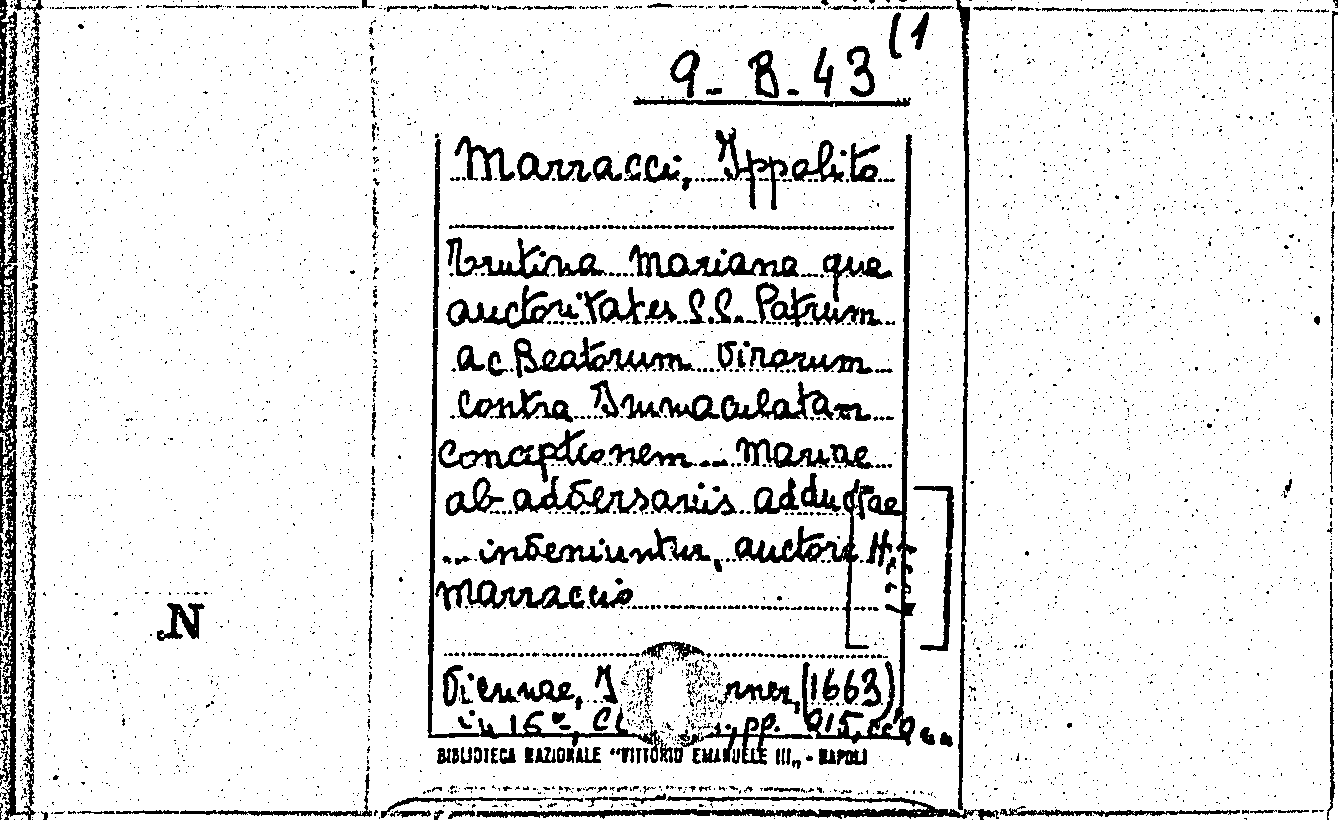 9-B-43 (1
Marracci, Ippolito
Trutina Mariana qua
auctoritates S.S. Patrum
ac Beatorum Virorum
contra Immaculatam
conceptionem... Mariae
ab adversariis adductae
... inveniuntur, auctore H.
Marraccio
Viennae, (1663)
in 16°, pp. 915,
BIBLIOTECA NAZIONALE "VITTORIO EMANUELE III„ - NAPOLI
N